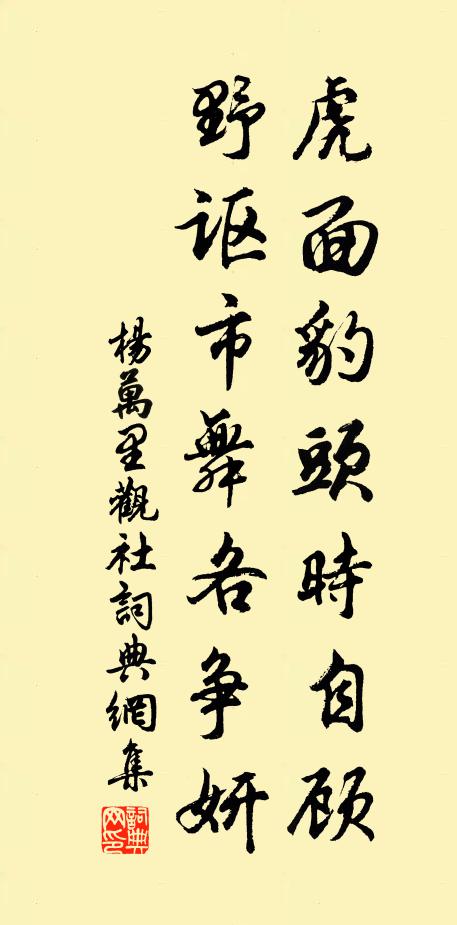 虎面豹頭時自顧
野謳市舞各争妍
楊萬里觀社詞典網集
詞典網印